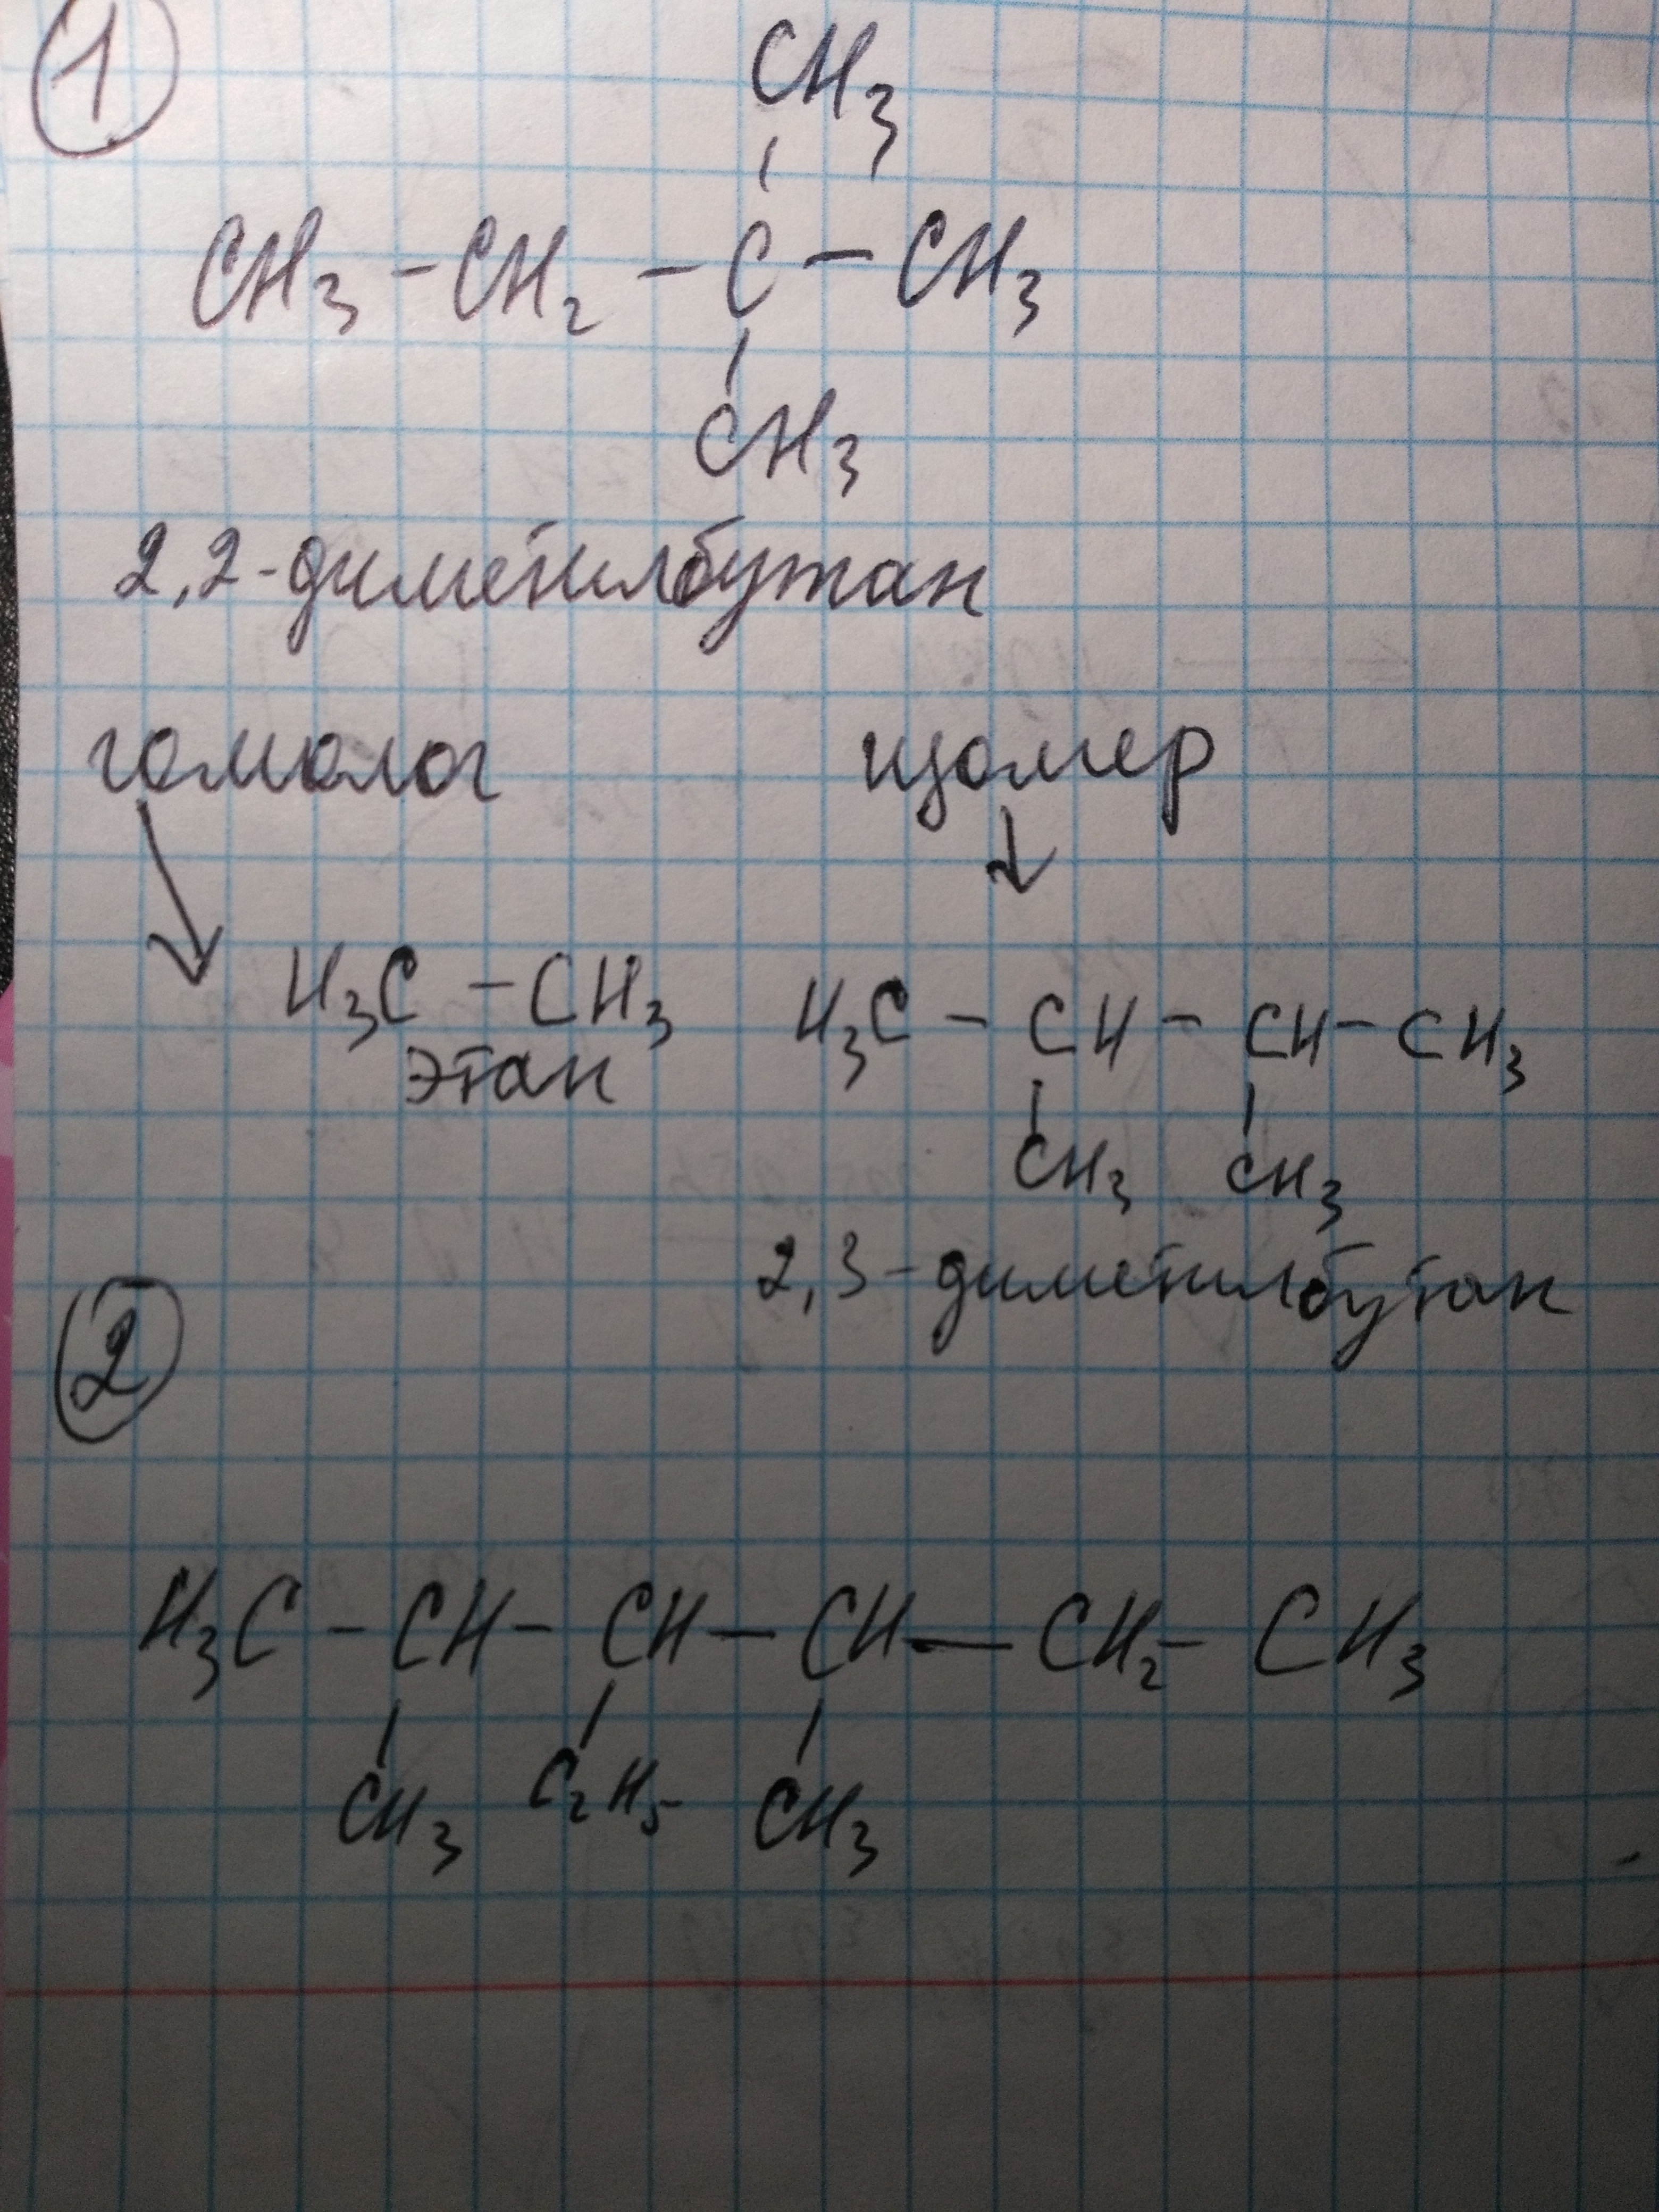 1
CH3
CH3 - CH2 - C - CH3
CH3
2,2-диметилбутан
гомолог изомер
H3C - CH3 H3C - CH - CH - CH3
этан
CH3 CH3
2,3-диметилбутан
2
H3C - CH - CH - CH - CH2 - CH3
CH3 C2H5 CH3